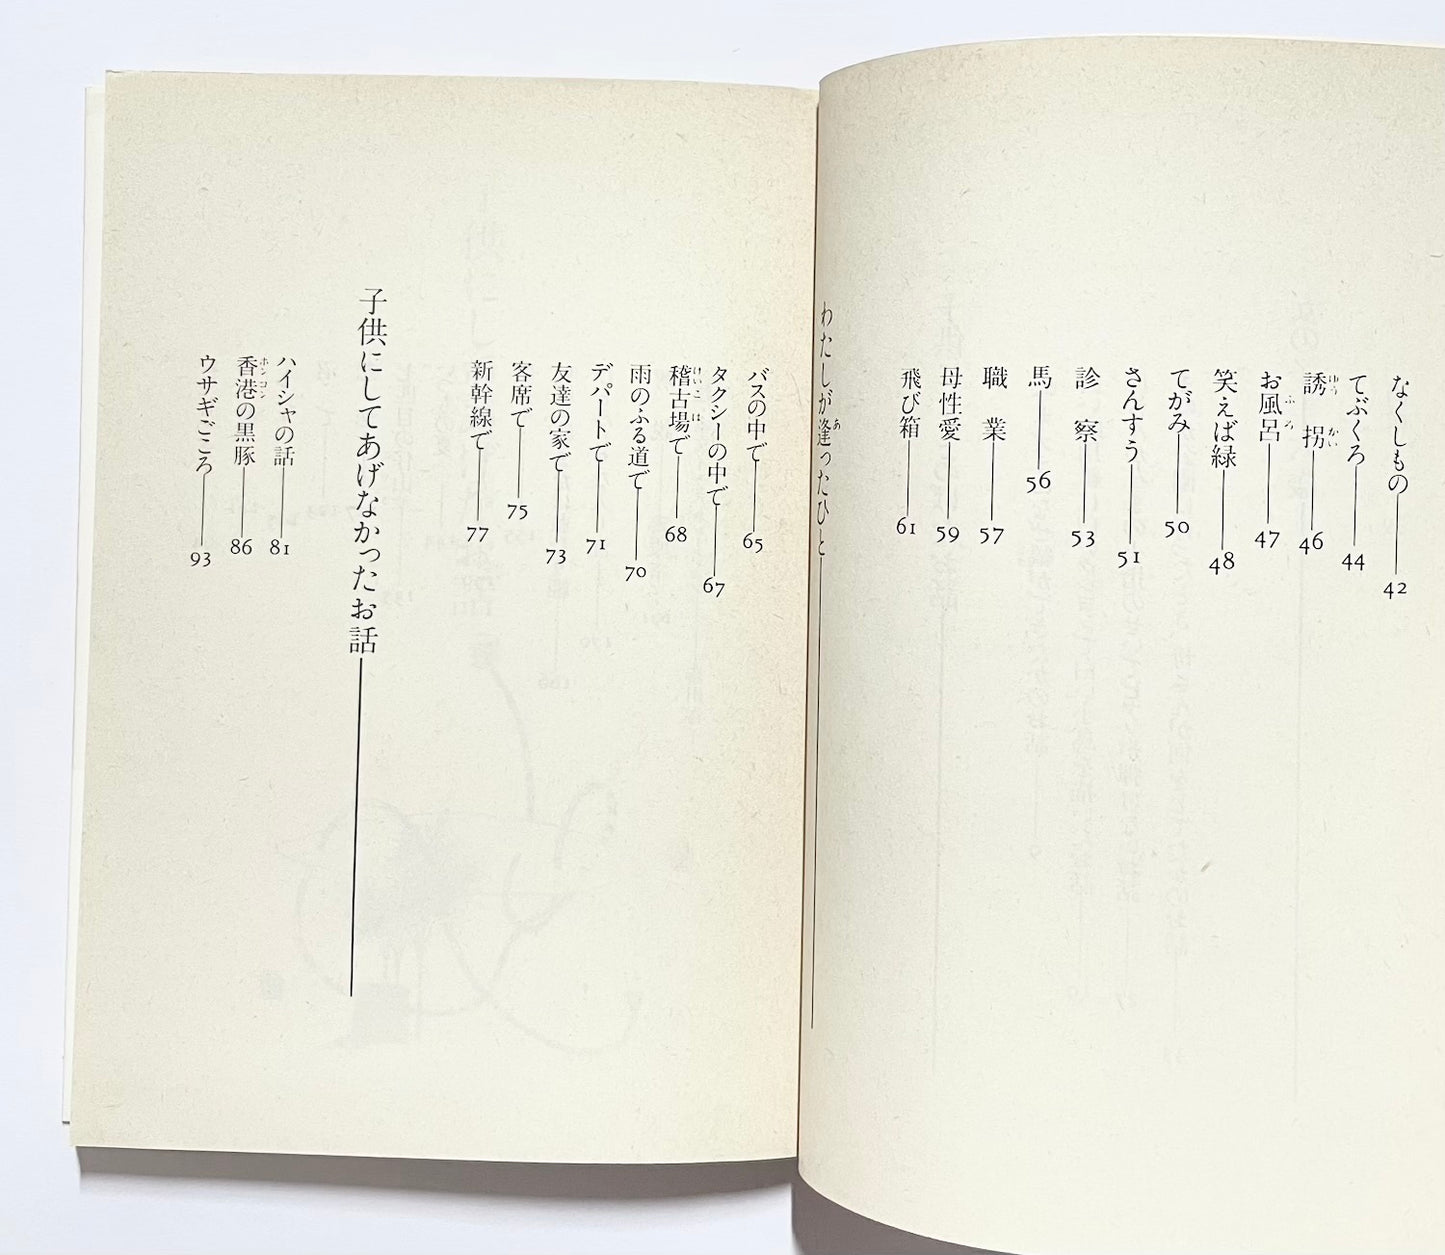 なくしもの 42
てぶくろ 44
誘拐 46
お風呂 47
笑えば緑 48
てがみ 50
さんすう 51
診察 53
馬 56
職業 57
母性愛 59
飛び箱 61
わたしが逢ったひと
バスの中で 65
タクシーの中で 67
稽古場で 68
雨のふる道で 70
デパートで 71
友達の家で 73
客席で 75
新幹線で 77
子供にしてあげなかったお話
ハイシャの話 81
香港の黒豚 86
ウサギごころ 93